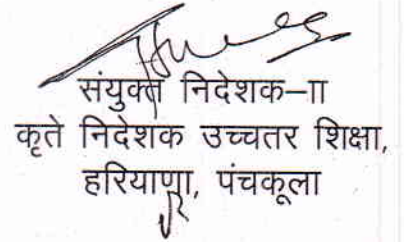 संयुक्त निदेशक–II
कृते निदेशक उच्चतर शिक्षा,
हरियाणा, पंचकूला